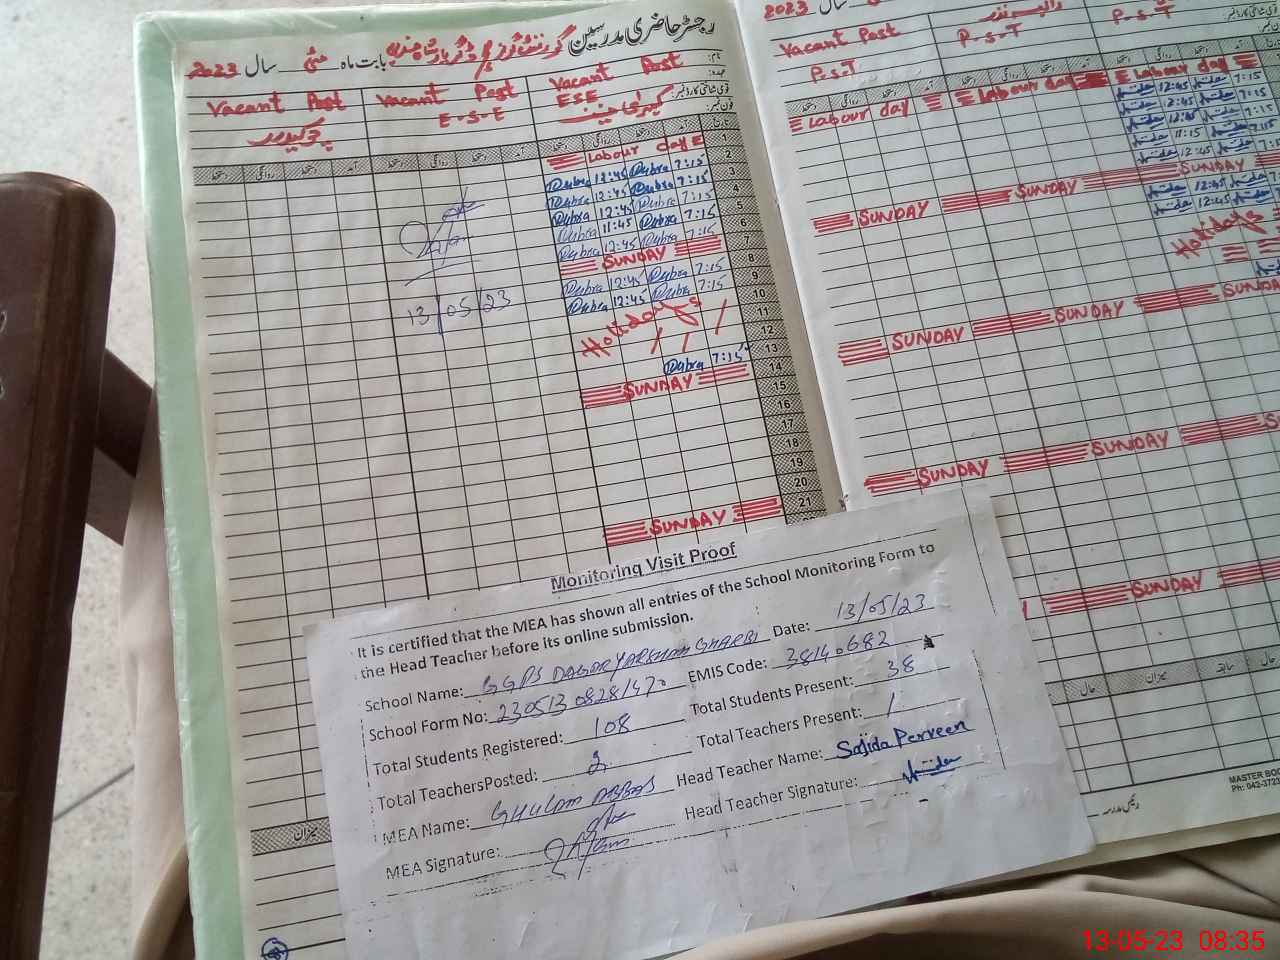 رجسٹر حاضری مدرسین
بابت ماہ مئی سال 2023
نام: Vacant Post Vacant Post Vacant Post
عہدہ: ESE E-S-E چوکیدار
قومی شناختی کارڈ نمبر:
فون نمبر:
تاریخ آمد دستخط روانگی دستخط آمد دستخط روانگی دستخط آمد دستخط روانگی دستخط
1 Labour day
2 7:15 12:45
3 7:15 12:45
4 7:15 12:45
5 7:15 11:45
6 7:15 12:45
7 SUNDAY
8 7:15 12:45
9 7:15 12:45
10 Holidays
11
12
13 7:15
14 SUNDAY
15
16
17
18
19
20
21 SUNDAY
13/05/23
میزان
2023 سال
Vacant Post
P.S.T P-S-T P-S-T
Labour day Labour day Labour day
7:15 12:45
7:15 12:45
7:15 12:45
7:15 11:15
7:15 12:45
SUNDAY SUNDAY SUNDAY
7:15 12:45
7:15 12:45
Holidays
SUNDAY SUNDAY SUNDAY
SUNDAY SUNDAY
SUNDAY
حال سابقہ میزان حال
رئیس مدرسہ
MASTER BOO
Ph: 042-3723
Monitoring Visit Proof
It is certified that the MEA has shown all entries of the School Monitoring Form to
the Head Teacher before its online submission.
School Name: GGPS DABAR YARSHAH GHARBI Date: 13/05/23
School Form No: 230513 08281470 EMIS Code: 38140682
Total Students Registered: 108 Total Students Present: 38
Total TeachersPosted: 2 Total Teachers Present: 1
MEA Name: GHULAM ABBAS Head Teacher Name: Sajida Perveen
MEA Signature: Head Teacher Signature:
13-05-23 08:35